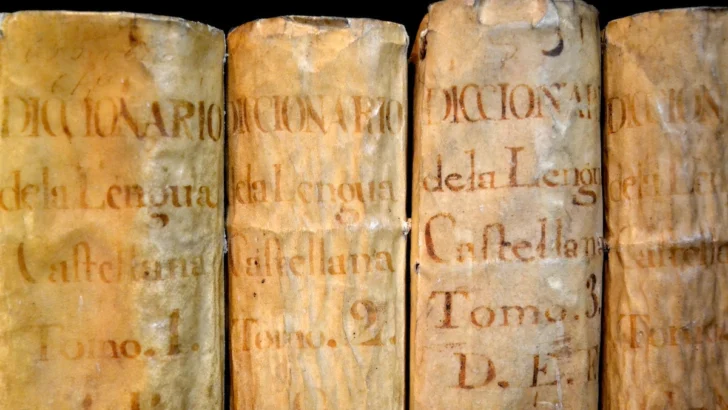 DICCIONARIO
dela Lengua
Castellana
Tomo. 1.
DICCIONARIO
dela Lengua
Castellana
Tomo. 2.
DICCIONAR
dela Lengu
Castellana
Tomo. 3.
D. E. F
DICCION
dela Len
Castella
Tomo.